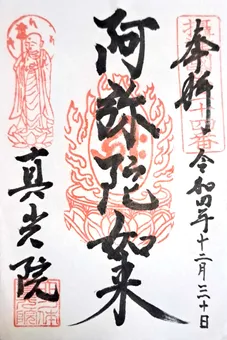 奉拝
令和四年十二月三十日
阿弥陀如来
真光院